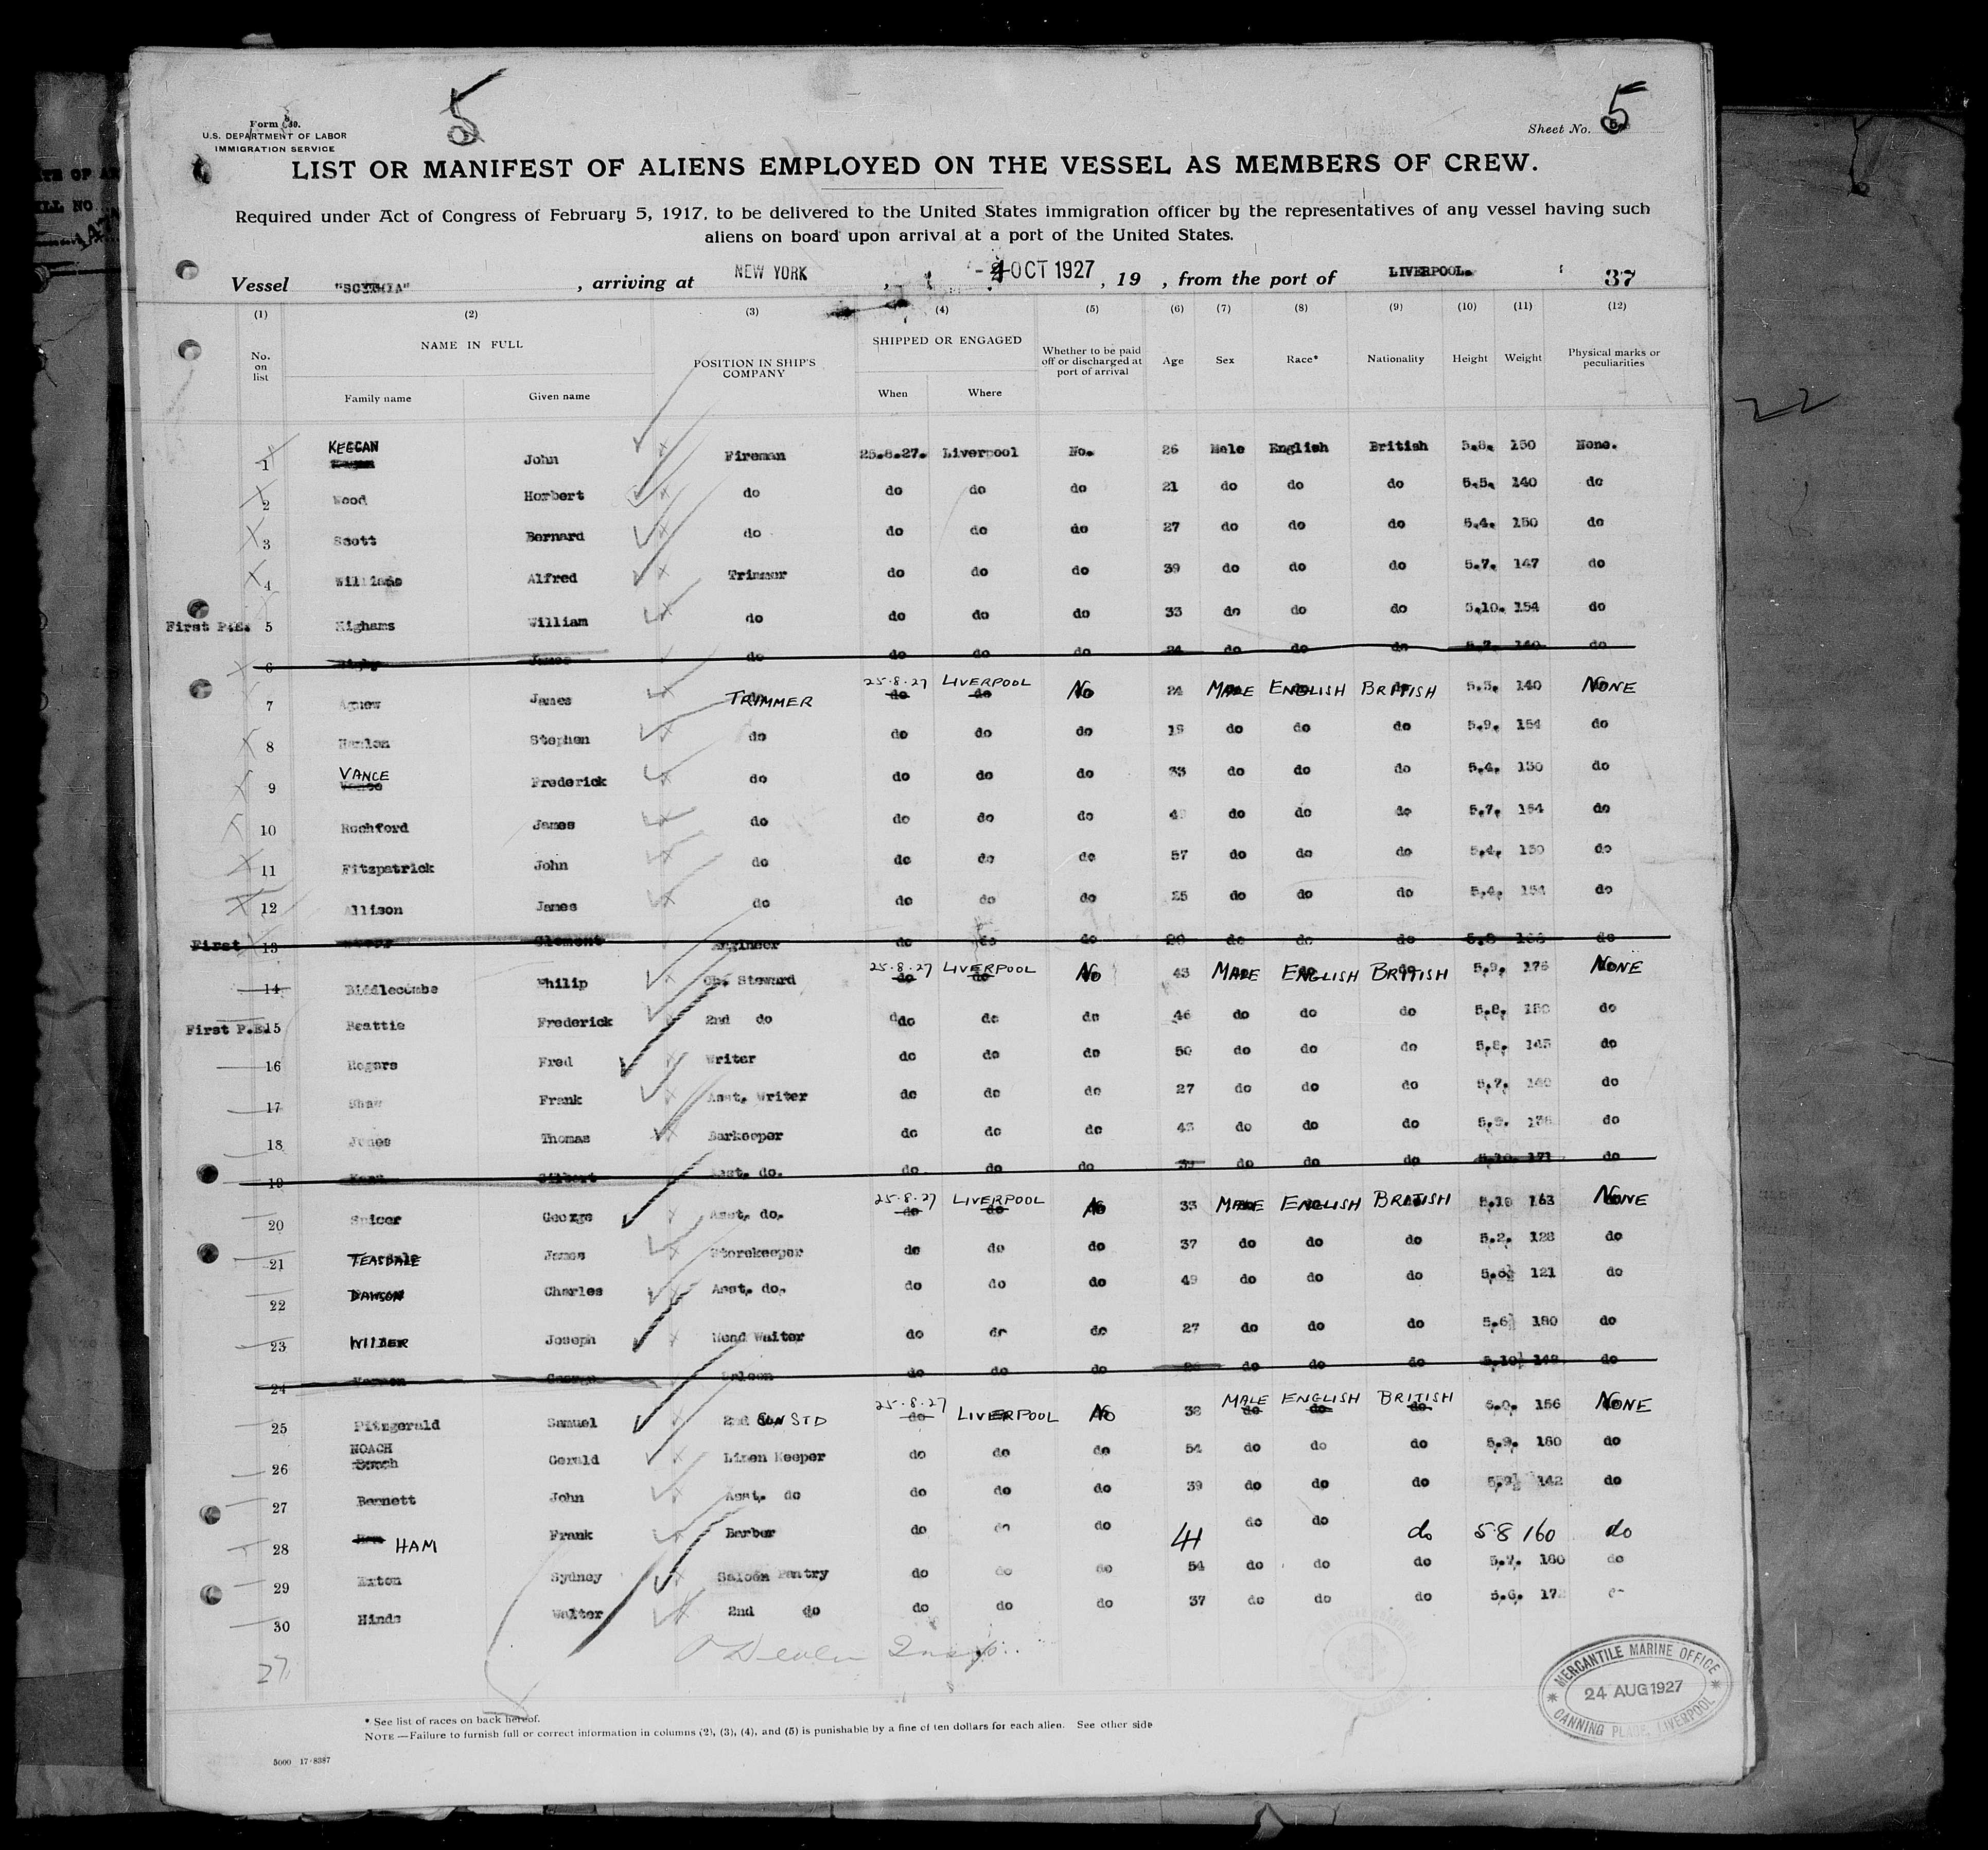 5
5
Form 680.
U.S. DEPARTMENT OF LABOR
IMMIGRATION SERVICE
Sheet No.
LIST OR MANIFEST OF ALIENS EMPLOYED ON THE VESSEL AS MEMBERS OF CREW.
Required under Act of Congress of February 5, 1917, to be delivered to the United States immigration officer by the representatives of any vessel having such
aliens on board upon arrival at a port of the United States.
Vessel "SCYTHIA" , arriving at NEW YORK , OCT 1927 , 19 , from the port of LIVERPOOL. 37
(1) (2) (3) (4) (5) (6) (7) (8) (9) (10) (11) (12)
No. on list NAME IN FULL POSITION IN SHIP'S COMPANY SHIPPED OR ENGAGED Whether to be paid off or discharged at port of arrival Age Sex Race* Nationality Height Weight Physical marks or peculiarities
Family name Given name When Where
1 KEGGAN John Fireman 25.8.27. Liverpool No. 26 Male English British 5.8. 150 None.
2 Wood Herbert do do do do 21 do do do 5.5. 140 do
3 Scott Bernard do do do do 27 do do do 5.4. 150 do
4 Williams Alfred Trimmer do do do 39 do do do 5.7. 147 do
First P.E. 5 Highams William do do do do 33 do do do 5.10. 154 do
6 James do do do do 24 do do do 5.7. 140 do
7 Agnew James TRIMMER 25.8.27 LIVERPOOL No 24 MALE ENGLISH BRITISH 5.5. 140 NONE
8 Hanlon Stephen do do do do do do do 5.9. 154 do
9 VANCE Frederick do do do do 33 do do do 5.4. 130 do
10 Rochford James do do do do do do do 5.7. 154 do
11 Fitzpatrick John do do do do 57 do do do 5.4. 150 do
12 Allison James do do do do 25 do do do 5.4. 154 do
First 13 Clement Engineer do do do do do do do
14 Biddlecombe Philip Ch. Steward 25.8.27 LIVERPOOL No 43 MALE ENGLISH BRITISH 5.9. 176 NONE
First P.E. 15 Beattie Frederick 2nd do do do do 46 do do do 5.8. 150 do
16 Rogers Fred Writer do do do 50 do do do 5.8. 145 do
17 Shaw Frank Asst. Writer do do do 27 do do do 5.7. 140 do
18 Jones Thomas Barkeeper do do do 43 do do do do
19 Gilbert Asst. do. do do do do do do 5.10. 171 do
20 Spicer George Asst. do. 25.8.27 LIVERPOOL No 33 MALE ENGLISH BRITISH 5.10 163 NONE
21 TEASDALE James Storekeeper do do do 37 do do do 5.2. 128 do
22 DAWSON Charles Asst. do. do do do 49 do do do 121 do
23 WILDER Joseph Head Waiter do do do 27 do do do 5.6½ 180 do
24 Vernon George Saloon do do do do do do 5.10½ 148 do
25 Fitzgerald Samuel 2nd STD 25.8.27 LIVERPOOL No 38 MALE ENGLISH BRITISH 6.0. 156 NONE
26 NOACH Gerald Linen Keeper do do do 54 do do do 5.9. 180 do
27 Bennett John Asst. do do do do 39 do do do 5.9½ 142 do
28 HAM Frank Barber do do do 41 do do do 5.8 160 do
29 Exton Sydney Saloon Pantry do do do 54 do do do 5.7. 180 do
30 Hinds Walter 2nd do do do do 37 do do do 5.6.
27
MERCANTILE MARINE OFFICE
24 AUG 1927
CANNING PLACE, LIVERPOOL
* See list of races on back hereof.
NOTE.—Failure to furnish full or correct information in columns (2), (3), (4), and (5) is punishable by a fine of ten dollars for each alien. See other side
5000 17-8387
22